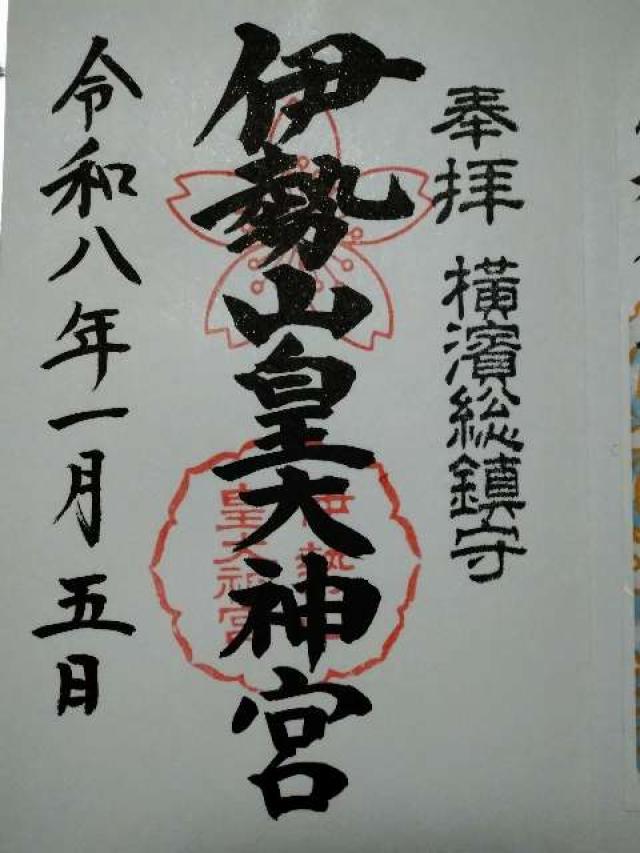 奉拝 横濱総鎮守
伊勢山皇大神宮
伊勢山
皇大神宮
令和八年一月五日